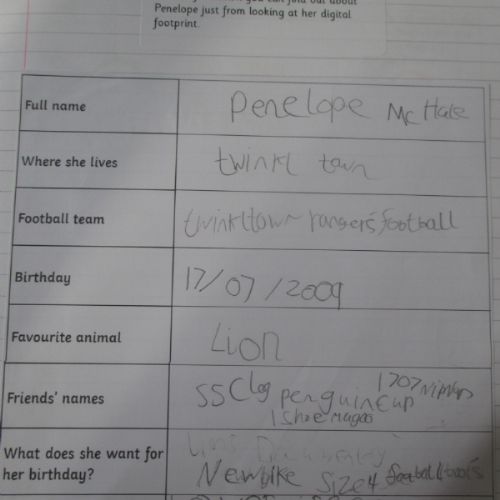 you can find out about
Penelope just from looking at her digital
footprint.
Full name Penelope Mc Hale
Where she lives twinkl town
Football team twinkltown rangers football
Birthday 17/07/2009
Favourite animal Lion
Friends' names SSClog penguincup 1707
1 Shoe
What does she want for
her birthday? New bike Size 4 football